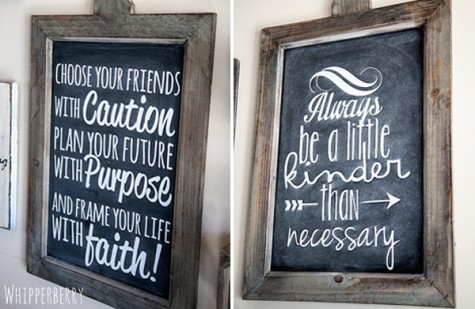 CHOOSE YOUR FRIENDS
WITH Caution
PLAN YOUR FUTURE
WITH Purpose
AND FRAME YOUR LIFE
WITH faith!
WHIPPERBERRY
Always
be a little
kinder
than
necessary